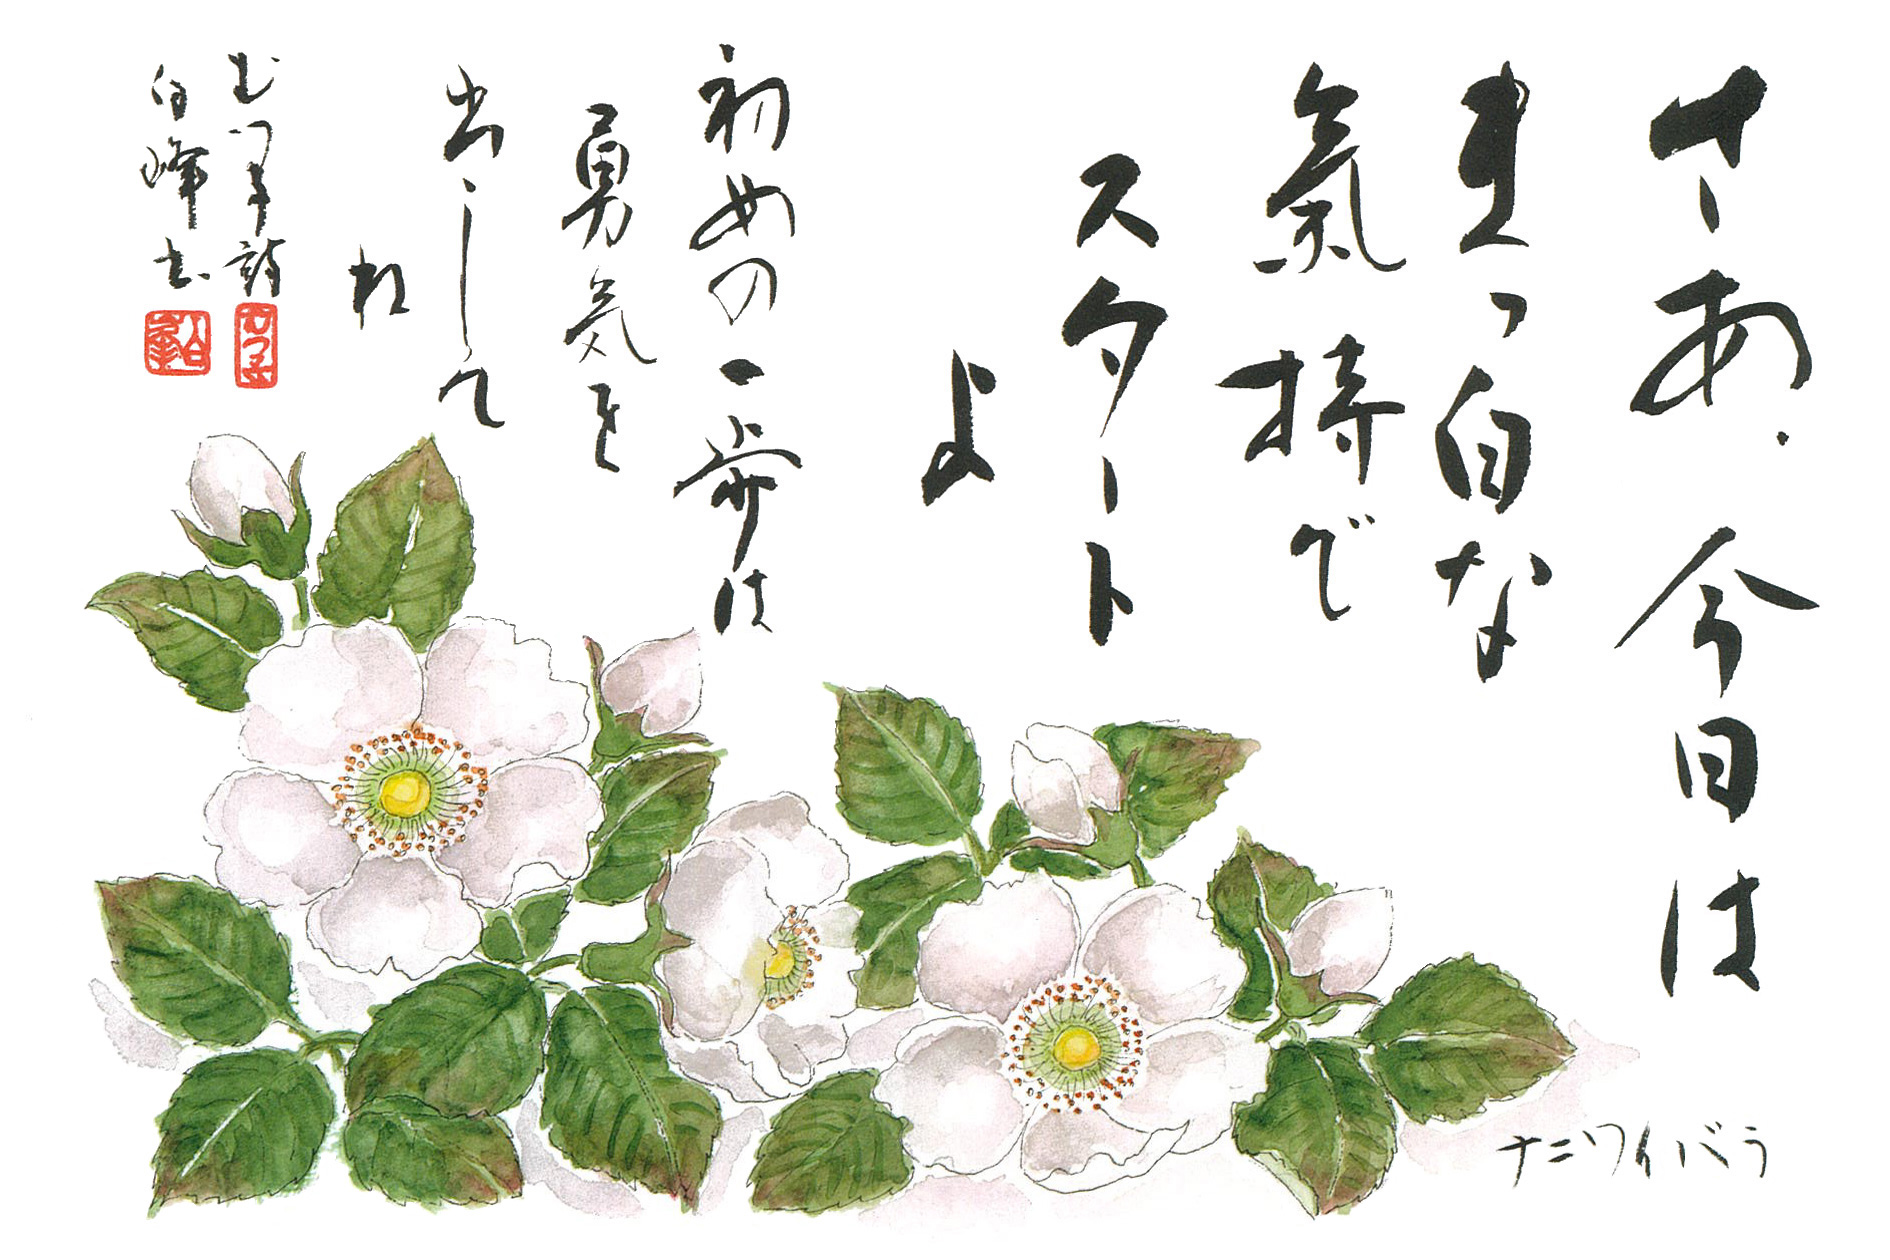 さあ.今日は
まっ白な
氣持で
スタート
よ
初めの一歩は
勇気を
出して
ね
白峰書
ナニワイバラ